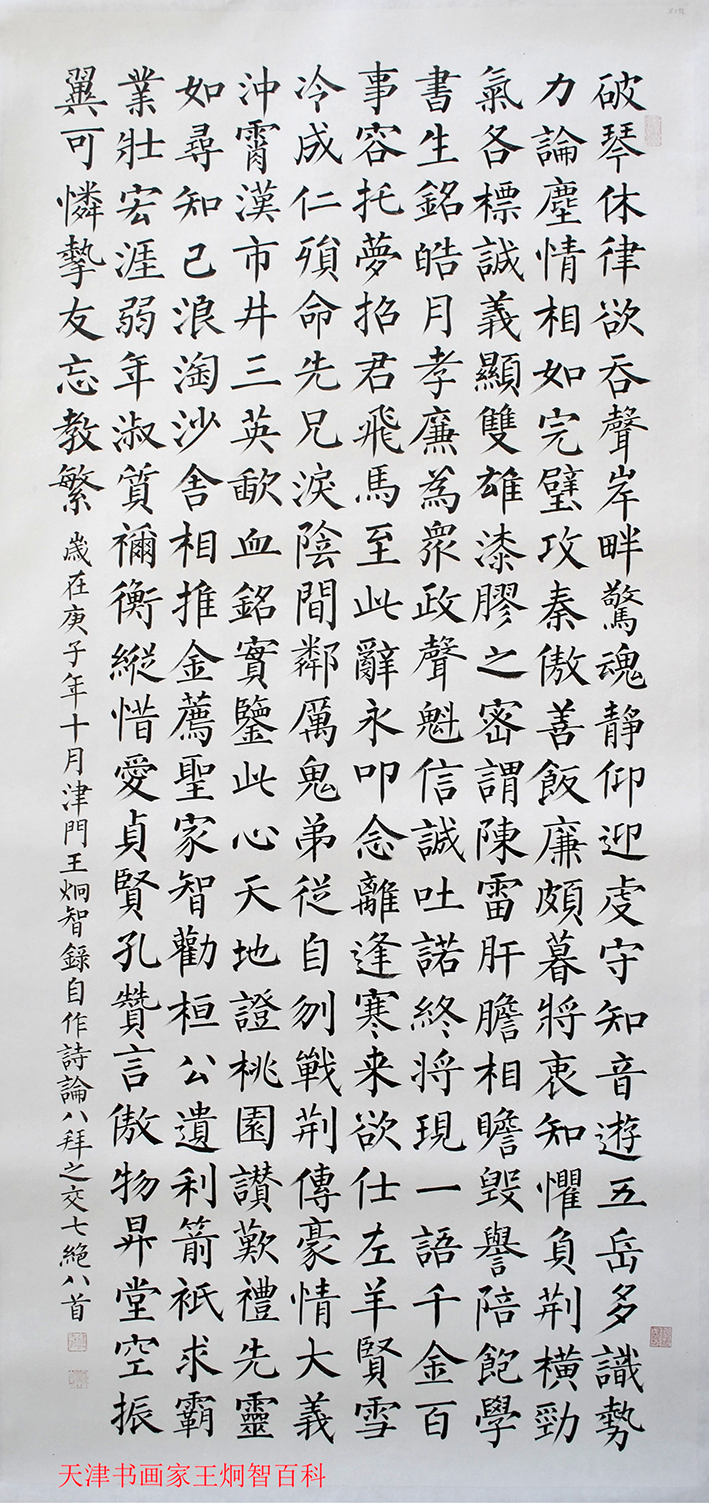 破琴休律欲吞聲岸畔驚魂靜仰迎虔守知音遊五岳多識勢
力論塵情相如完璧攻秦傲善飯廉頗暮將衷知懼負荆橫勁
氣各標誠義顯雙雄漆膠之密謂陳雷肝膽相瞻毀譽陪飽學
書生銘皓月孝廉為眾政聲魁信誠吐諾終將現一語千金百
事容托夢招君飛馬至此辭永叩念離逢寒来欲仕左羊賢雪
冷成仁殞命先兄淚陰間鄰厲鬼弟從自刎戰荆傳豪情大義
沖霄漢市井三英歃血銘實鑒此心天地證桃園讃歎禮先靈
如尋知己浪淘沙舍相推金薦聖家智勸桓公遺利箭祇求霸
業壯宏涯弱年淑質禰衡縱惜愛貞賢孔贊言傲物昇堂空振
翼可憐摯友忘教繁 歲在庚子年十月津門王炯智錄自作詩論八拜之交七絕八首
天津书画家王炯智百科